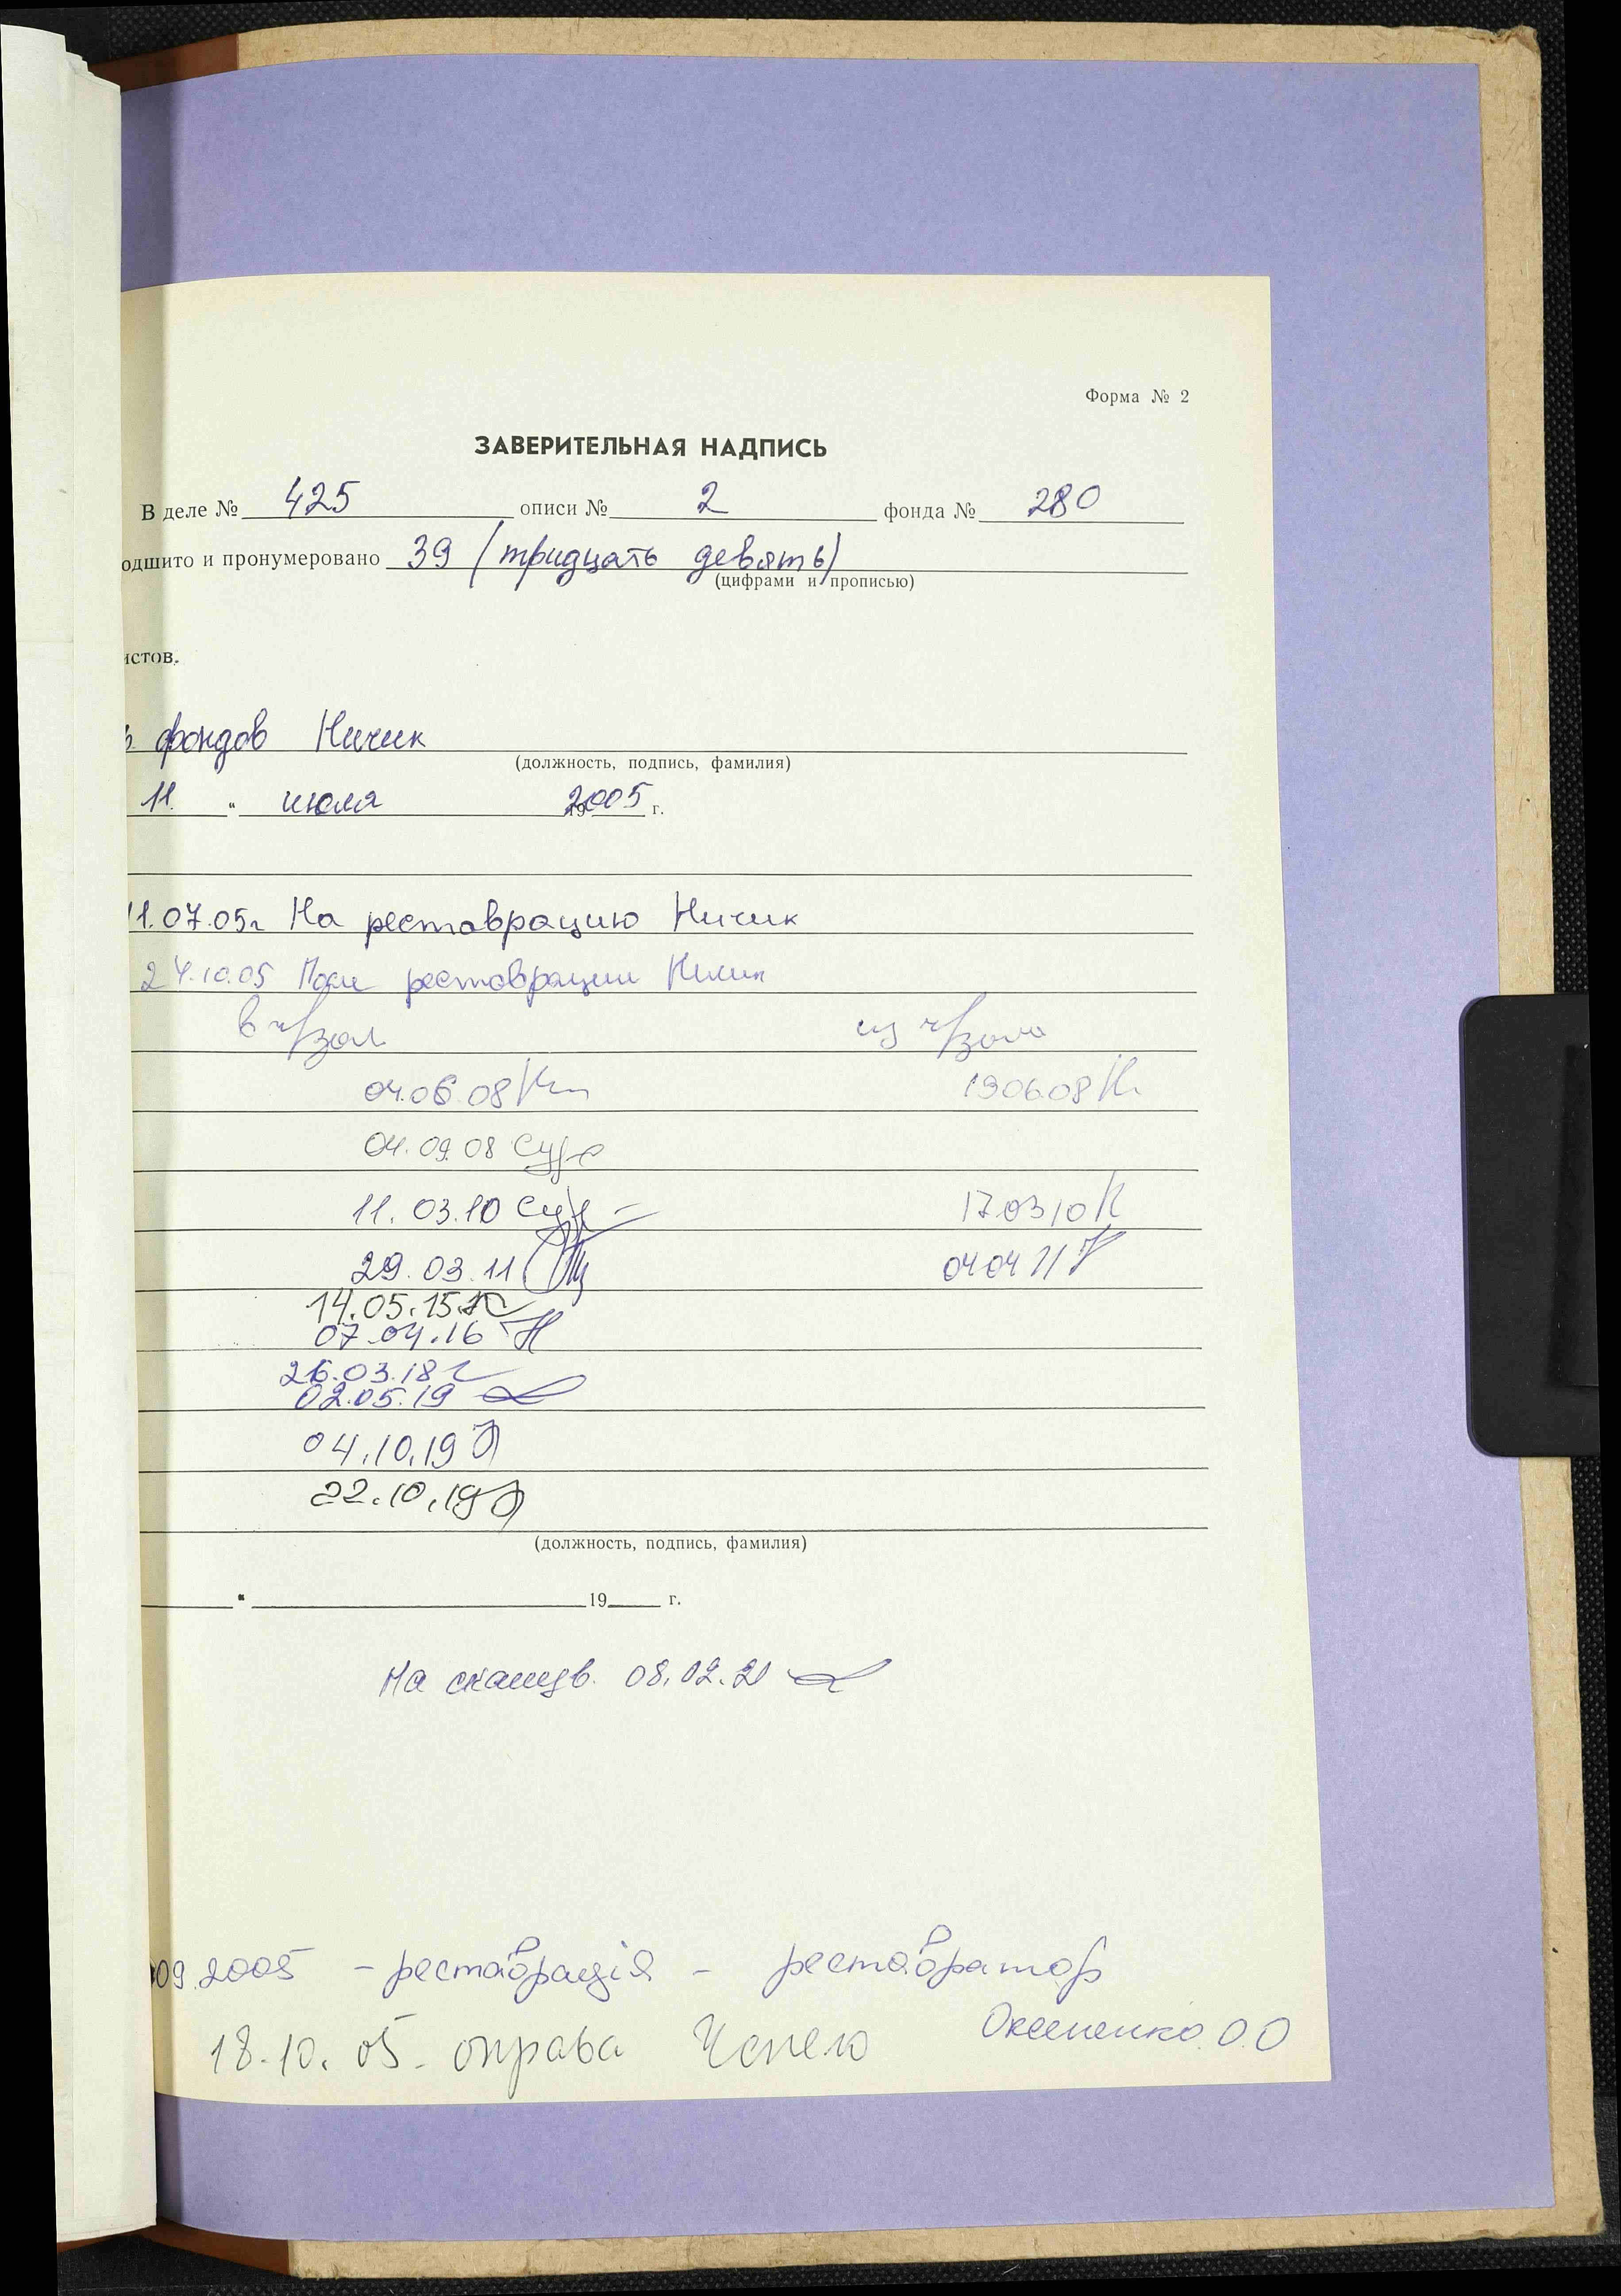 Форма № 2
ЗАВЕРИТЕЛЬНАЯ НАДПИСЬ
В деле № 425 описи № 2 фонда № 280
одшито и пронумеровано 39 (тридцать девять)
(цифрами и прописью)
истов.
фондов Ничик
(должность, подпись, фамилия)
11. " июля 2005 г.
11.07.05г На реставрацию Ничик
24.10.05 После реставрации Ничик
в ч/зал из ч/зала
04.06.08 19.06.08
04.09.08
11.03.10 17.03.10
29.03.11 04.04.11
14.05.15
07.04.16
26.03.18
02.05.19
04.10.19
22.10.19
(должность, подпись, фамилия)
" 19 г.
На сканув. 08.02.21
09.2005 - реставрація - реставратор
18.10.05. оправа О.О